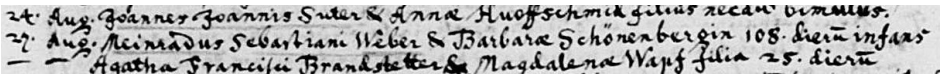 24. Aug. Joannes Joannis Suter & Annæ Huoffschmid filius necdū bimulus.
27. Aug. Meinradus Sebastiani Weber & Barbaræ Schönenbergin 108. dierū infans
— — Agatha Francisci Brandstetter & Magdalenæ Wapf filia 25. dierū